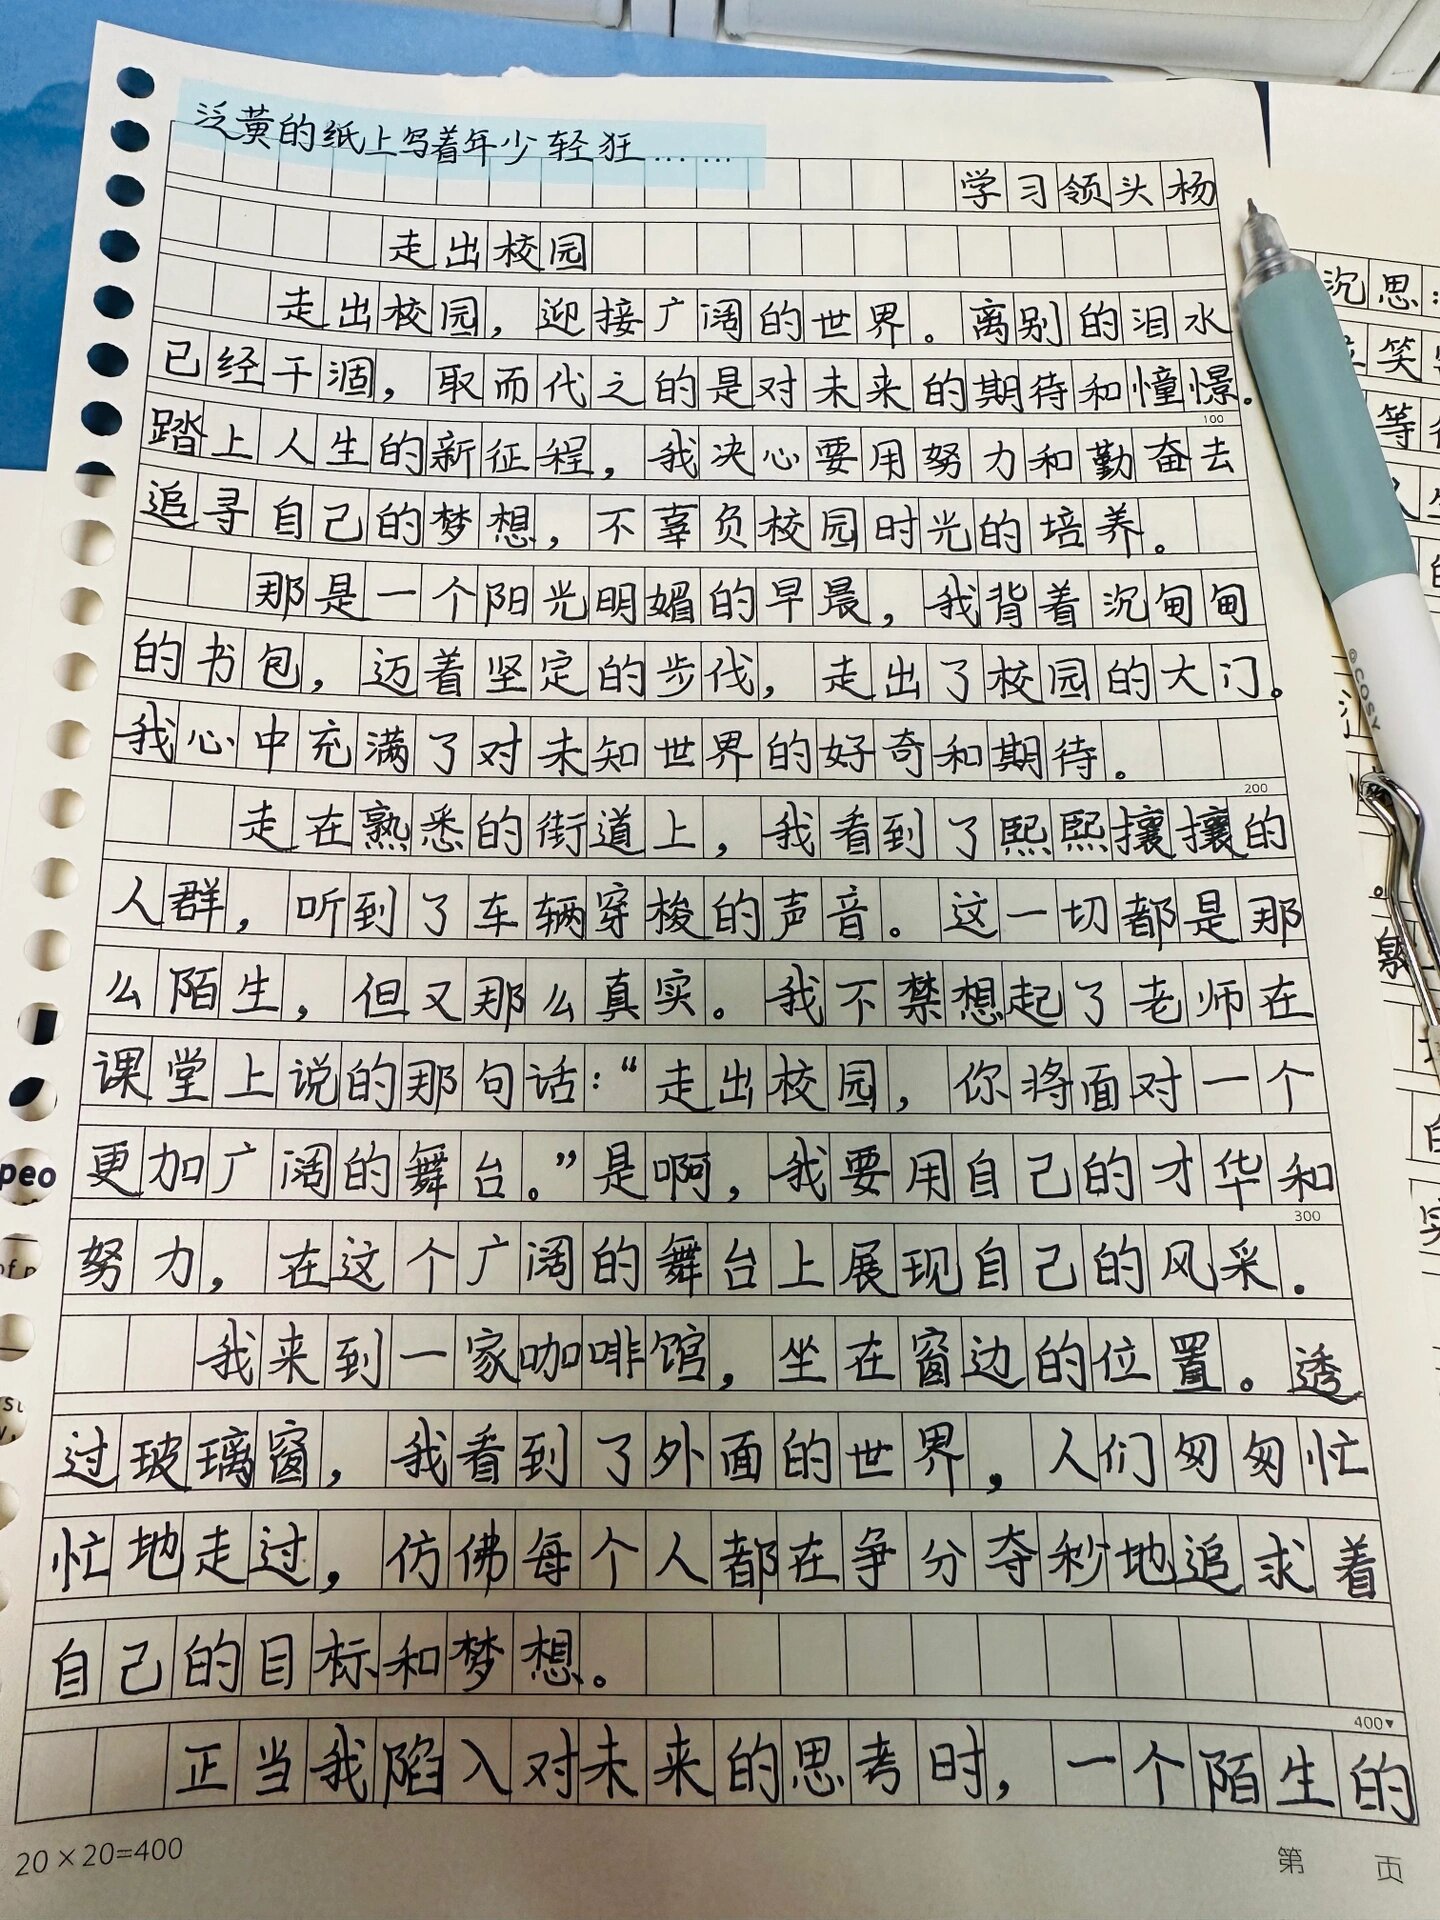 泛黄的纸上写着年少轻狂……
学习领头杨
走出校园
走出校园，迎接广阔的世界。离别的泪水
已经干涸，取而代之的是对未来的期待和憧憬.
100
踏上人生的新征程，我决心要用努力和勤奋去
追寻自己的梦想，不辜负校园时光的培养。
那是一个阳光明媚的早晨，我背着沉甸甸
的书包，迈着坚定的步伐，走出了校园的大门。
我心中充满了对未知世界的好奇和期待。
200
走在熟悉的街道上，我看到了熙熙攘攘的
人群，听到了车辆穿梭的声音。这一切都是那
么陌生，但又那么真实。我不禁想起了老师在
课堂上说的那句话：“走出校园，你将面对一个
更加广阔的舞台。”是啊，我要用自己的才华和
300
努力，在这个广阔的舞台上展现自己的风采.
我来到一家咖啡馆，坐在窗边的位置。透
过玻璃窗，我看到了外面的世界，人们匆匆忙
忙地走过，仿佛每个人都在争分夺秒地追求着
自己的目标和梦想。
400▼
正当我陷入对未来的思考时，一个陌生的
20×20=400
第 页
沉思：
笑
等
©COSY
peo